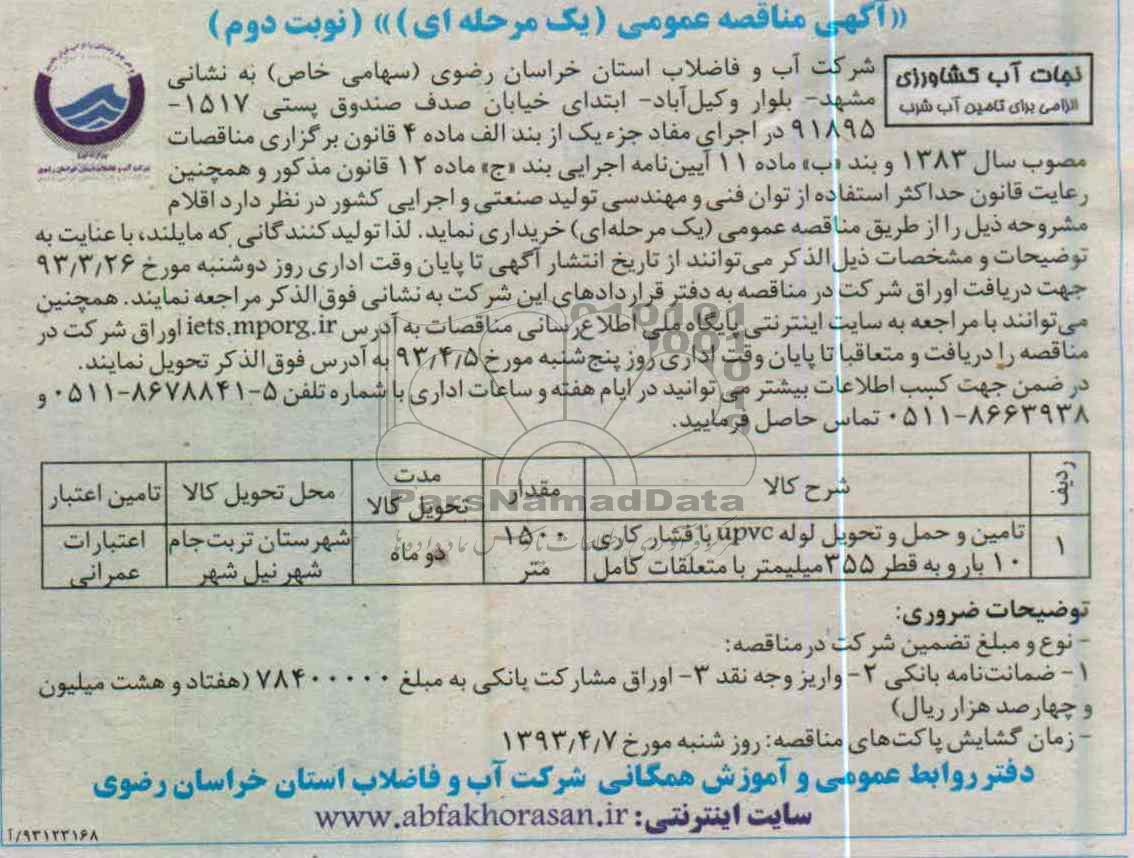 «آگهی مناقصه عمومی (یک مرحله ای)» (نوبت دوم)
نجات آب کشاورزی
الزامی برای تامین آب شرب
شرکت آب و فاضلاب استان خراسان رضوی (سهامی خاص) به نشانی
مشهد- بلوار وکیل‌آباد- ابتدای خیابان صدف صندوق پستی ۱۵۱۷-
۹۱۸۹۵ در اجرای مفاد جزء یک از بند الف ماده ۴ قانون برگزاری مناقصات
مصوب سال ۱۳۸۳ و بند «ب» ماده ۱۱ آیین‌نامه اجرایی بند «ج» ماده ۱۲ قانون مذکور و همچنین
رعایت قانون حداکثر استفاده از توان فنی و مهندسی تولید صنعتی و اجرایی کشور در نظر دارد اقلام
مشروحه ذیل را از طریق مناقصه عمومی (یک مرحله‌ای) خریداری نماید. لذا تولیدکنندگانی که مایلند، با عنایت به
توضیحات و مشخصات ذیل‌الذکر می‌توانند از تاریخ انتشار آگهی تا پایان وقت اداری روز دوشنبه مورخ ۹۳/۳/۲۶
جهت دریافت اوراق شرکت در مناقصه به دفتر قراردادهای این شرکت به نشانی فوق‌الذکر مراجعه نمایند. همچنین
می‌توانند با مراجعه به سایت اینترنتی پایگاه ملی اطلاع‌رسانی مناقصات به آدرس iets.mporg.ir اوراق شرکت در
مناقصه را دریافت و متعاقبا تا پایان وقت اداری روز پنج‌شنبه مورخ ۹۳/۴/۵ به آدرس فوق‌الذکر تحویل نمایند.
در ضمن جهت کسب اطلاعات بیشتر می توانید در ایام هفته و ساعات اداری با شماره تلفن ۵-۸۶۷۸۸۴۱-۰۵۱۱ و
۸۶۶۳۹۳۸-۰۵۱۱ تماس حاصل فرمایید.
ردیف شرح کالا مقدار مدت تحویل کالا محل تحویل کالا تامین اعتبار
۱ تامین و حمل و تحویل لوله upvc با فشار کاری ۱۵۰۰ دو ماه شهرستان تربت‌جام اعتبارات
۱۰ بار و به قطر ۳۵۵ میلیمتر با متعلقات کامل متر شهر نیل شهر عمرانی
ParsNamadData
توضیحات ضروری:
- نوع و مبلغ تضمین شرکت در مناقصه:
۱- ضمانت‌نامه بانکی ۲- واریز وجه نقد ۳- اوراق مشارکت بانکی به مبلغ ۷۸۴۰۰۰۰۰ (هفتاد و هشت میلیون
و چهارصد هزار ریال)
- زمان گشایش پاکت‌های مناقصه: روز شنبه مورخ ۱۳۹۳/۴/۷
دفتر روابط عمومی و آموزش همگانی شرکت آب و فاضلاب استان خراسان رضوی
سایت اینترنتی: www.abfakhorasan.ir
۹۳۱۲۳۱۶۸/آ